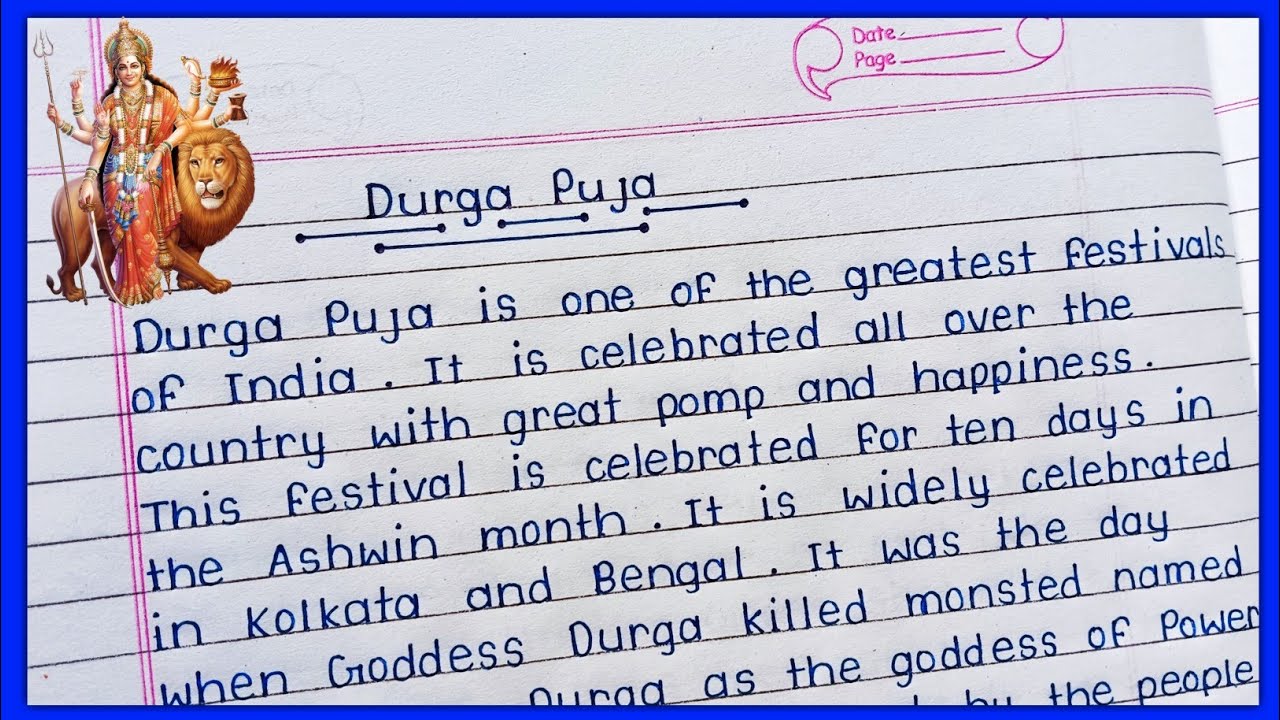 Date
Page
Durga Puja
Durga Puja is one of the greatest festivals
of India. It is celebrated all over the
country with great pomp and happiness.
This festival is celebrated for ten days in
the Ashwin month. It is widely celebrated
in Kolkata and Bengal. It was the day
when Goddess Durga killed monsted named
Durga as the goddess of Power
by the people